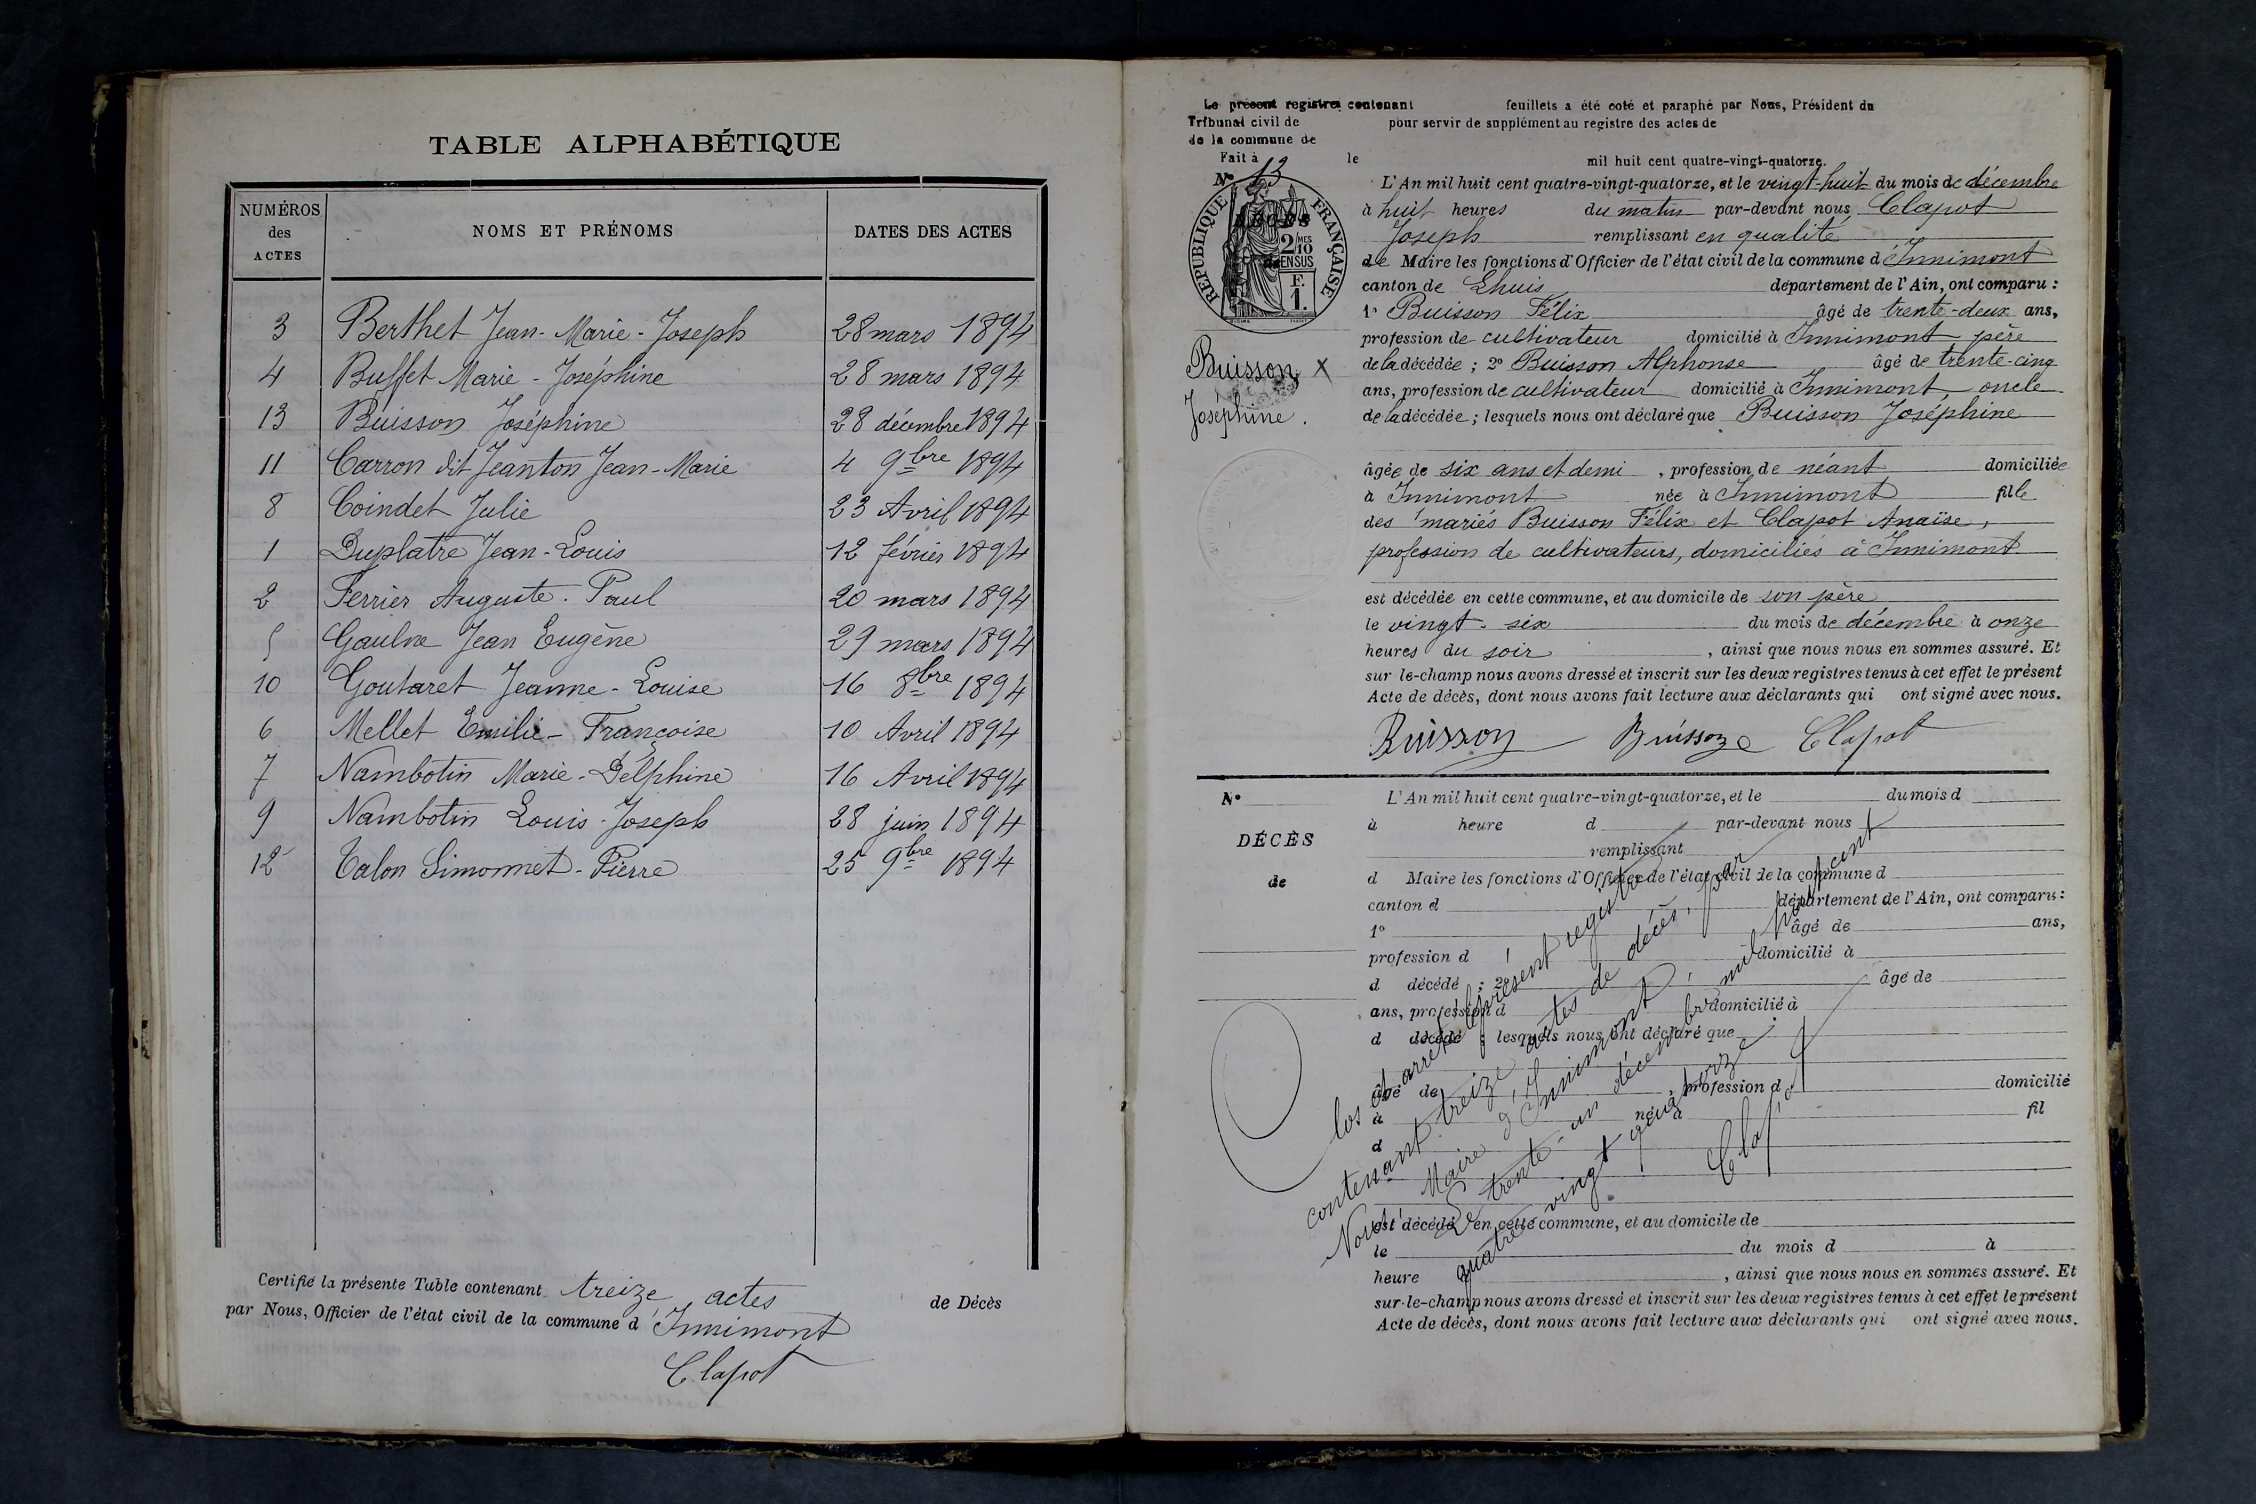 TABLE ALPHABÉTIQUE
NUMÉROS des ACTES | NOMS ET PRÉNOMS | DATES DES ACTES
3 | Berthet Jean-Marie-Joseph | 28 mars 1894
4 | Buffet Marie-Joséphine | 28 mars 1894
13 | Buisson Joséphine | 28 décembre 1894
11 | Carron dit Jeanton Jean-Marie | 4 9bre 1894
8 | Coindet Julie | 23 Avril 1894
1 | Duplatre Jean-Louis | 12 février 1894
2 | Ferrier Auguste-Paul | 20 mars 1894
5 | Gaulne Jean Eugène | 29 mars 1894
10 | Goutaret Jeanne-Louise | 16 8bre 1894
6 | Mellet Emilie-Françoise | 10 Avril 1894
7 | Nambotin Marie-Delphine | 16 Avril 1894
9 | Nambotin Louis-Joseph | 28 juin 1894
12 | Talon Simonnet-Pierre | 25 9bre 1894
Certifié la présente Table contenant treize actes de Décès
par Nous, Officier de l'état civil de la commune d'Innimont
Clapot
Le présent registre contenant feuillets a été coté et paraphé par Nous, Président du
Tribunal civil de pour servir de supplément au registre des actes de
de la commune de
Fait à le mil huit cent quatre-vingt-quatorze.
N° 13
RÉPUBLIQUE FRANÇAISE
2/10 EN SUS
F. 1.
Buisson X
Joséphine.
L'An mil huit cent quatre-vingt-quatorze, et le vingt-huit du mois de décembre
à huit heures du matin par-devant nous Clapot
Joseph remplissant en qualité
de Maire les fonctions d'Officier de l'état civil de la commune d'Innimont
canton de Lhuis département de l'Ain, ont comparu :
1° Buisson Félix âgé de trente-deux ans,
profession de cultivateur domicilié à Innimont père
de la décédée ; 2° Buisson Alphonse âgé de trente-cinq
ans, profession de cultivateur domicilié à Innimont, oncle
de la décédée ; lesquels nous ont déclaré que Buisson Joséphine
âgée de six ans et demi, profession de néant domiciliée
à Innimont née à Innimont fille
des mariés Buisson Félix et Clapot Anaïse,
profession de cultivateurs, domiciliés à Innimont
est décédée en cette commune, et au domicile de son père
le vingt-six du mois de décembre à onze
heures du soir, ainsi que nous nous en sommes assuré. Et
sur-le-champ nous avons dressé et inscrit sur les deux registres tenus à cet effet le présent
Acte de décès, dont nous avons fait lecture aux déclarants qui ont signé avec nous.
Buisson Buisson Clapot
N°
DÉCÈS
de
L'An mil huit cent quatre-vingt-quatorze, et le du mois d
à heure d par-devant nous
remplissant
d Maire les fonctions d'Officier de l'état civil de la commune d
canton d département de l'Ain, ont comparu :
1° âgé de ans,
profession d domicilié à
d décédé ; 2° âgé de
ans, profession d domicilié à
d décédé ; lesquels nous ont déclaré que
âgé de , profession d domicilié
à né à fil
d
est décédé en cette commune, et au domicile de
le du mois d à
heure , ainsi que nous nous en sommes assuré. Et
sur-le-champ nous avons dressé et inscrit sur les deux registres tenus à cet effet le présent
Acte de décès, dont nous avons fait lecture aux déclarants qui ont signé avec nous.
Clos et arrêté le présent registre
contenant treize actes de décès, par
Nous, Maire d'Innimont,
Le trente-un décembre mil huit cent
quatre vingt quatorze.
Clapot